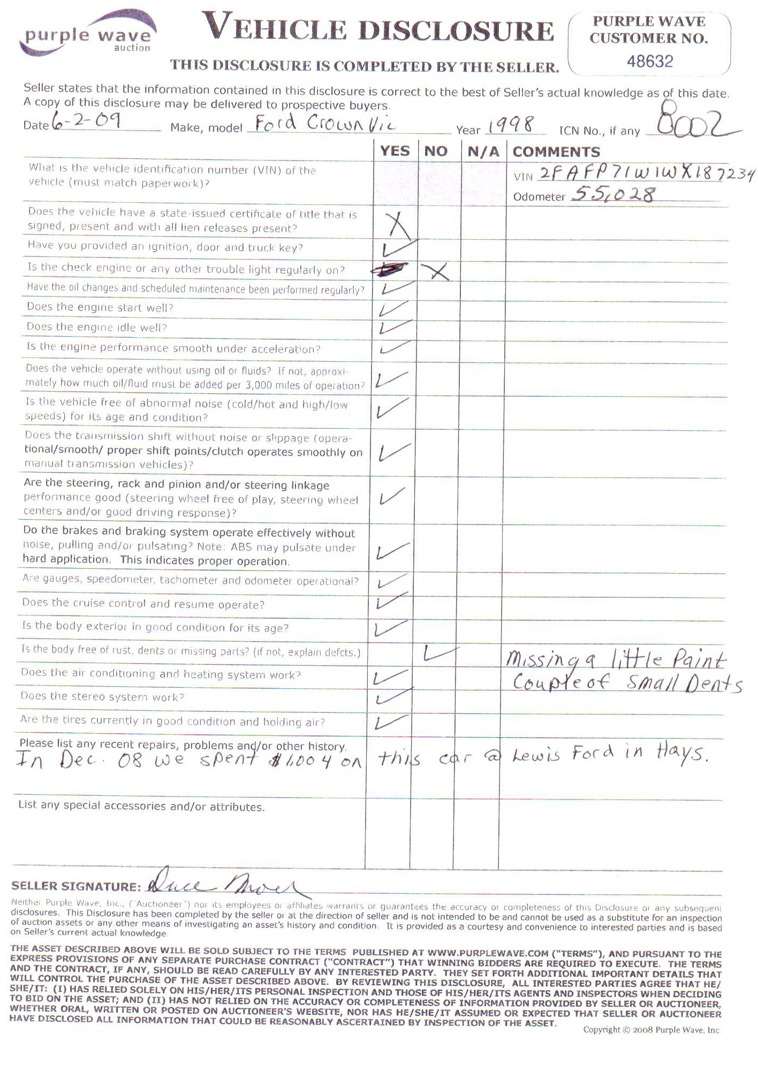 purple wave
auction
VEHICLE DISCLOSURE
THIS DISCLOSURE IS COMPLETED BY THE SELLER.
PURPLE WAVE
CUSTOMER NO.
48632
Seller states that the information contained in this disclosure is correct to the best of Seller's actual knowledge as of this date.
A copy of this disclosure may be delivered to prospective buyers.
Date 6-2-09 Make, model Ford Crown Vic Year 1998 ICN No., if any 8002
YES NO N/A COMMENTS
What is the vehicle identification number (VIN) of the
vehicle (must match paperwork)?
VIN 2FAFP71W1WX187234
Odometer 55,028
Does the vehicle have a state-issued certificate of title that is
signed, present and with all lien releases present? X
Have you provided an ignition, door and truck key? ✓
Is the check engine or any other trouble light regularly on? X
Have the oil changes and scheduled maintenance been performed regularly? ✓
Does the engine start well? ✓
Does the engine idle well? ✓
Is the engine performance smooth under acceleration? ✓
Does the vehicle operate without using oil or fluids? If not, approxi-
mately how much oil/fluid must be added per 3,000 miles of operation? ✓
Is the vehicle free of abnormal noise (cold/hot and high/low
speeds) for its age and condition? ✓
Does the transmission shift without noise or slippage (opera-
tional/smooth/ proper shift points/clutch operates smoothly on
manual transmission vehicles)? ✓
Are the steering, rack and pinion and/or steering linkage
performance good (steering wheel free of play, steering wheel
centers and/or good driving response)? ✓
Do the brakes and braking system operate effectively without
noise, pulling and/or pulsating? Note: ABS may pulsate under
hard application. This indicates proper operation. ✓
Are gauges, speedometer, tachometer and odometer operational? ✓
Does the cruise control and resume operate? ✓
Is the body exterior in good condition for its age? ✓
Is the body free of rust, dents or missing parts? (if not, explain defcts.) ✓
Missing a little Paint
Couple of Small Dents
Does the air conditioning and heating system work? ✓
Does the stereo system work? ✓
Are the tires currently in good condition and holding air? ✓
Please list any recent repairs, problems and/or other history.
In Dec. 08 we spent $1,004 on this car @ Lewis Ford in Hays.
List any special accessories and/or attributes.
SELLER SIGNATURE:
Neither Purple Wave, Inc., ("Auctioneer") nor its employees or affiliates warrants or guarantees the accuracy or completeness of this Disclosure or any subsequent
disclosures. This Disclosure has been completed by the seller or at the direction of seller and is not intended to be and cannot be used as a substitute for an inspection
of auction assets or any other means of investigating an asset's history and condition. It is provided as a courtesy and convenience to interested parties and is based
on Seller's current actual knowledge
THE ASSET DESCRIBED ABOVE WILL BE SOLD SUBJECT TO THE TERMS PUBLISHED AT WWW.PURPLEWAVE.COM ("TERMS"), AND PURSUANT TO THE
EXPRESS PROVISIONS OF ANY SEPARATE PURCHASE CONTRACT ("CONTRACT") THAT WINNING BIDDERS ARE REQUIRED TO EXECUTE. THE TERMS
AND THE CONTRACT, IF ANY, SHOULD BE READ CAREFULLY BY ANY INTERESTED PARTY. THEY SET FORTH ADDITIONAL IMPORTANT DETAILS THAT
WILL CONTROL THE PURCHASE OF THE ASSET DESCRIBED ABOVE. BY REVIEWING THIS DISCLOSURE, ALL INTERESTED PARTIES AGREE THAT HE/
SHE/IT: (I) HAS RELIED SOLELY ON HIS/HER/ITS PERSONAL INSPECTION AND THOSE OF HIS/HER/ITS AGENTS AND INSPECTORS WHEN DECIDING
TO BID ON THE ASSET; AND (II) HAS NOT RELIED ON THE ACCURACY OR COMPLETENESS OF INFORMATION PROVIDED BY SELLER OR AUCTIONEER,
WHETHER ORAL, WRITTEN OR POSTED ON AUCTIONEER'S WEBSITE, NOR HAS HE/SHE/IT ASSUMED OR EXPECTED THAT SELLER OR AUCTIONEER
HAVE DISCLOSED ALL INFORMATION THAT COULD BE REASONABLY ASCERTAINED BY INSPECTION OF THE ASSET.
Copyright © 2008 Purple Wave, Inc.